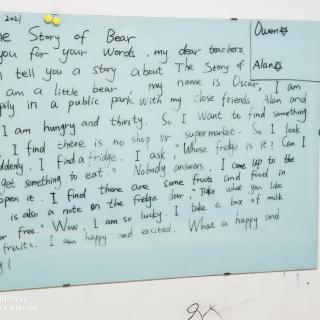 2021
he Story of Bear
you for your words, my dear teachers.
tell you a story about The Story of
am a little bear, my name is Oscar, I am
ply in a public park with my close friends Alan and
I am hungry and thirsty. So I want to find something
I find there is no shop or supermarket. So I look
ddenly, I find a fridge. I ask, "Whose fridge is it? Can I
get something to eat." Nobody answers. I come up to the
open it. I find there are some fruits and food in
is also a note on the fredge door, "Take what you like
or free." Wow, I am so lucky. I take a box of milk
fruits. I am happy and excited. What a happy and
y!
Owen
Alan
CAMERA